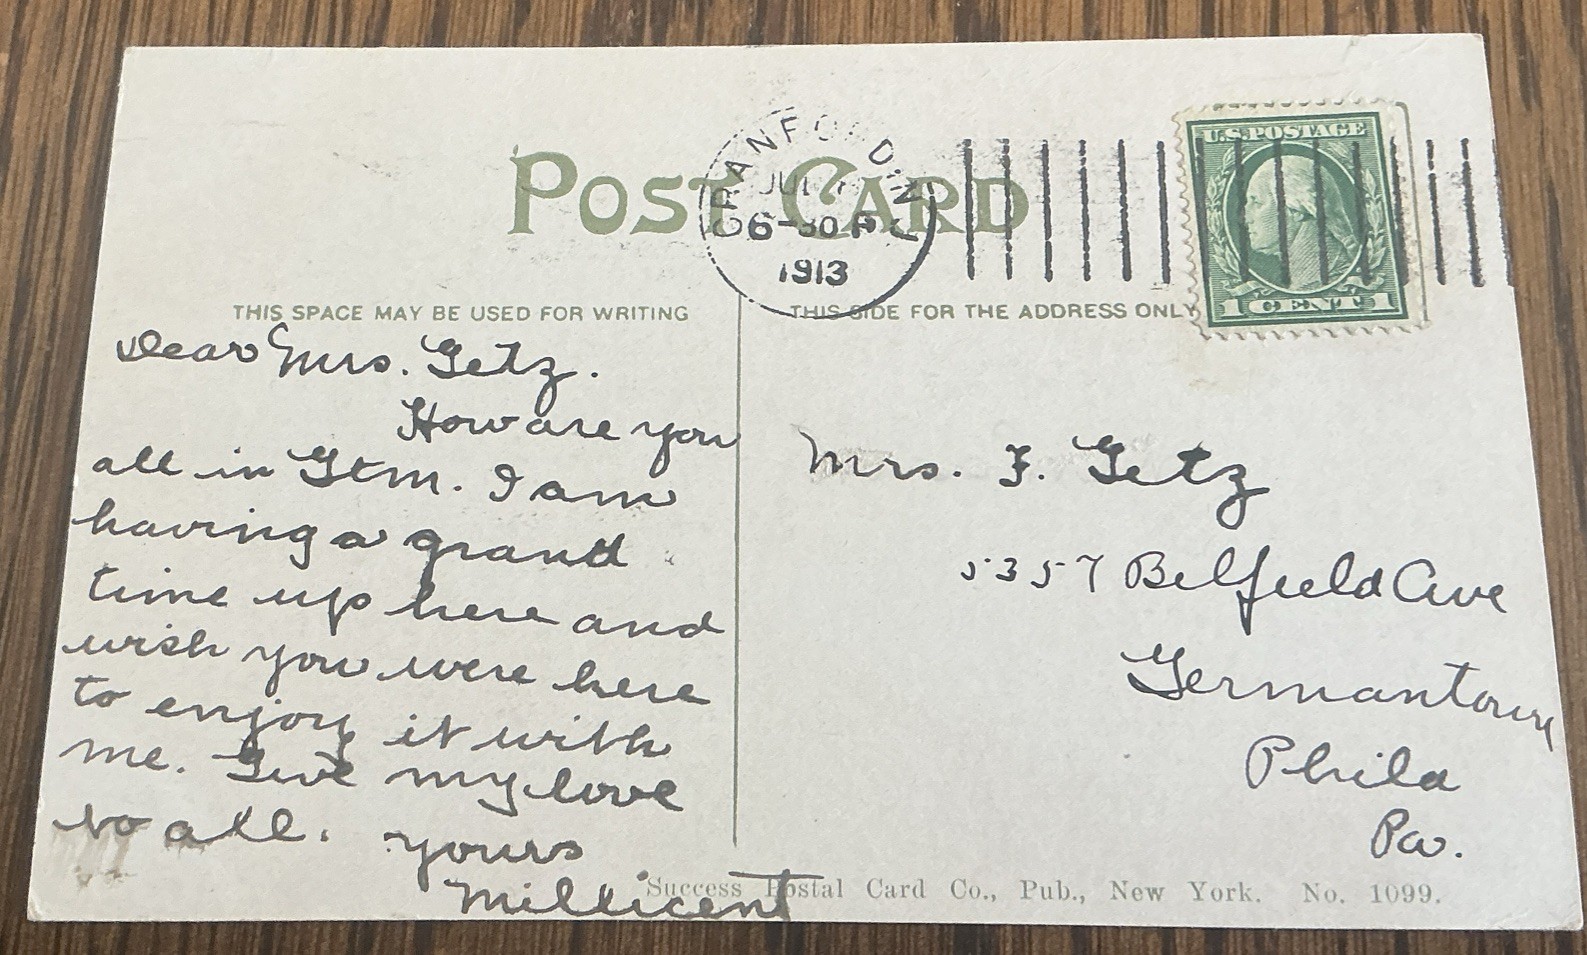 POST CARD
CRANFORD, N.J.
JUL
6-30 P
1913
U.S. POSTAGE
1 CENT 1
THIS SPACE MAY BE USED FOR WRITING
THIS SIDE FOR THE ADDRESS ONLY
Dear Mrs. Getz.
How are you
all in Gtn. I am
having a grand
time up here and
wish you were here
to enjoy it with
me. Give my love
to all.
yours
Millicent
Mrs. F. Getz
5357 Belfield Ave
Germantown
Phila
Pa.
Success Postal Card Co., Pub., New York. No. 1099.